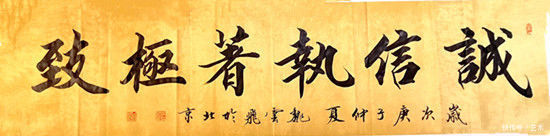 誠信執著極致
歲次庚子仲夏 雲飛於北京